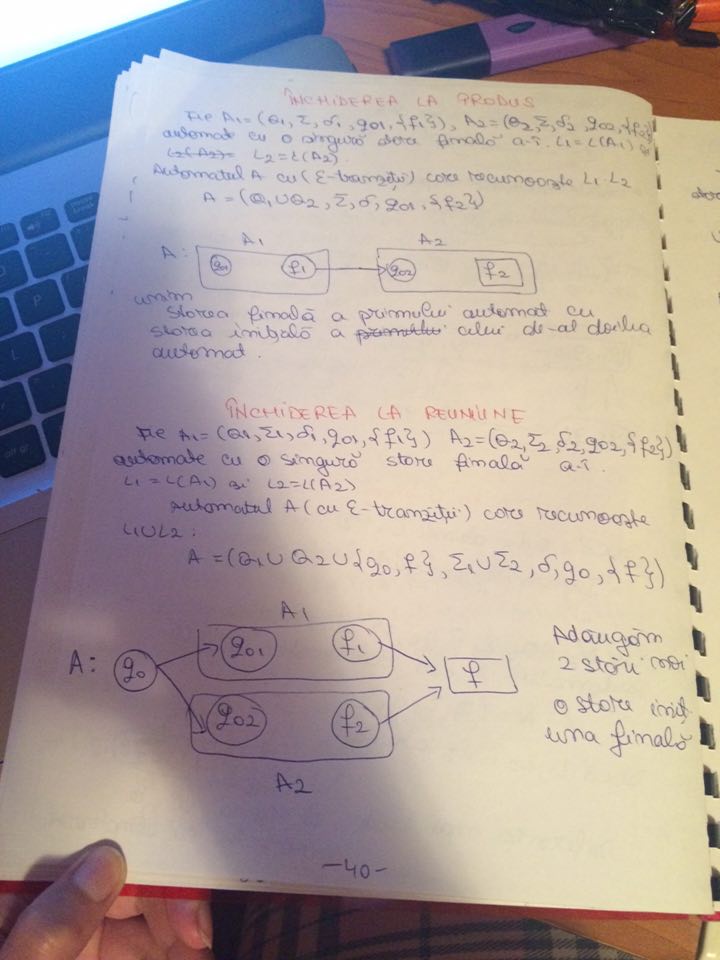 ÎNCHIDEREA LA PRODUS
Fie A1=(Q1,Σ,δ1,q01,{f1}), A2=(Q2,Σ,δ2,q02,{f2})
automat cu o singură stare finală a.î. L1=L(A1) și
L2(A2)= L2=L(A2).
Automatul A cu (ε-tranziții) care recunoaște L1·L2
A = (Q1∪Q2,Σ,δ,q01,{f2})
A1 A2
A: q01 f1 q02 f2
unim
starea finală a primului automat cu
starea inițială a primului celui de-al doilea
automat.
ÎNCHIDEREA LA REUNIUNE
Fie A1=(Q1,Σ1,δ1,q01,{f1}) A2=(Q2,Σ2,δ2,q02,{f2})
automate cu o singură stare finală a.î.
L1=L(A1) și L2=L(A2)
Automatul A(cu ε-tranziții) care recunoaște
L1∪L2:
A=(Q1∪Q2∪{q0,f},Σ1∪Σ2,δ,q0,{f})
A1
A: q0 q01 f1 f
q02 f2
A2
Adăugăm
2 stări noi
o stare iniț
una finală
-40-